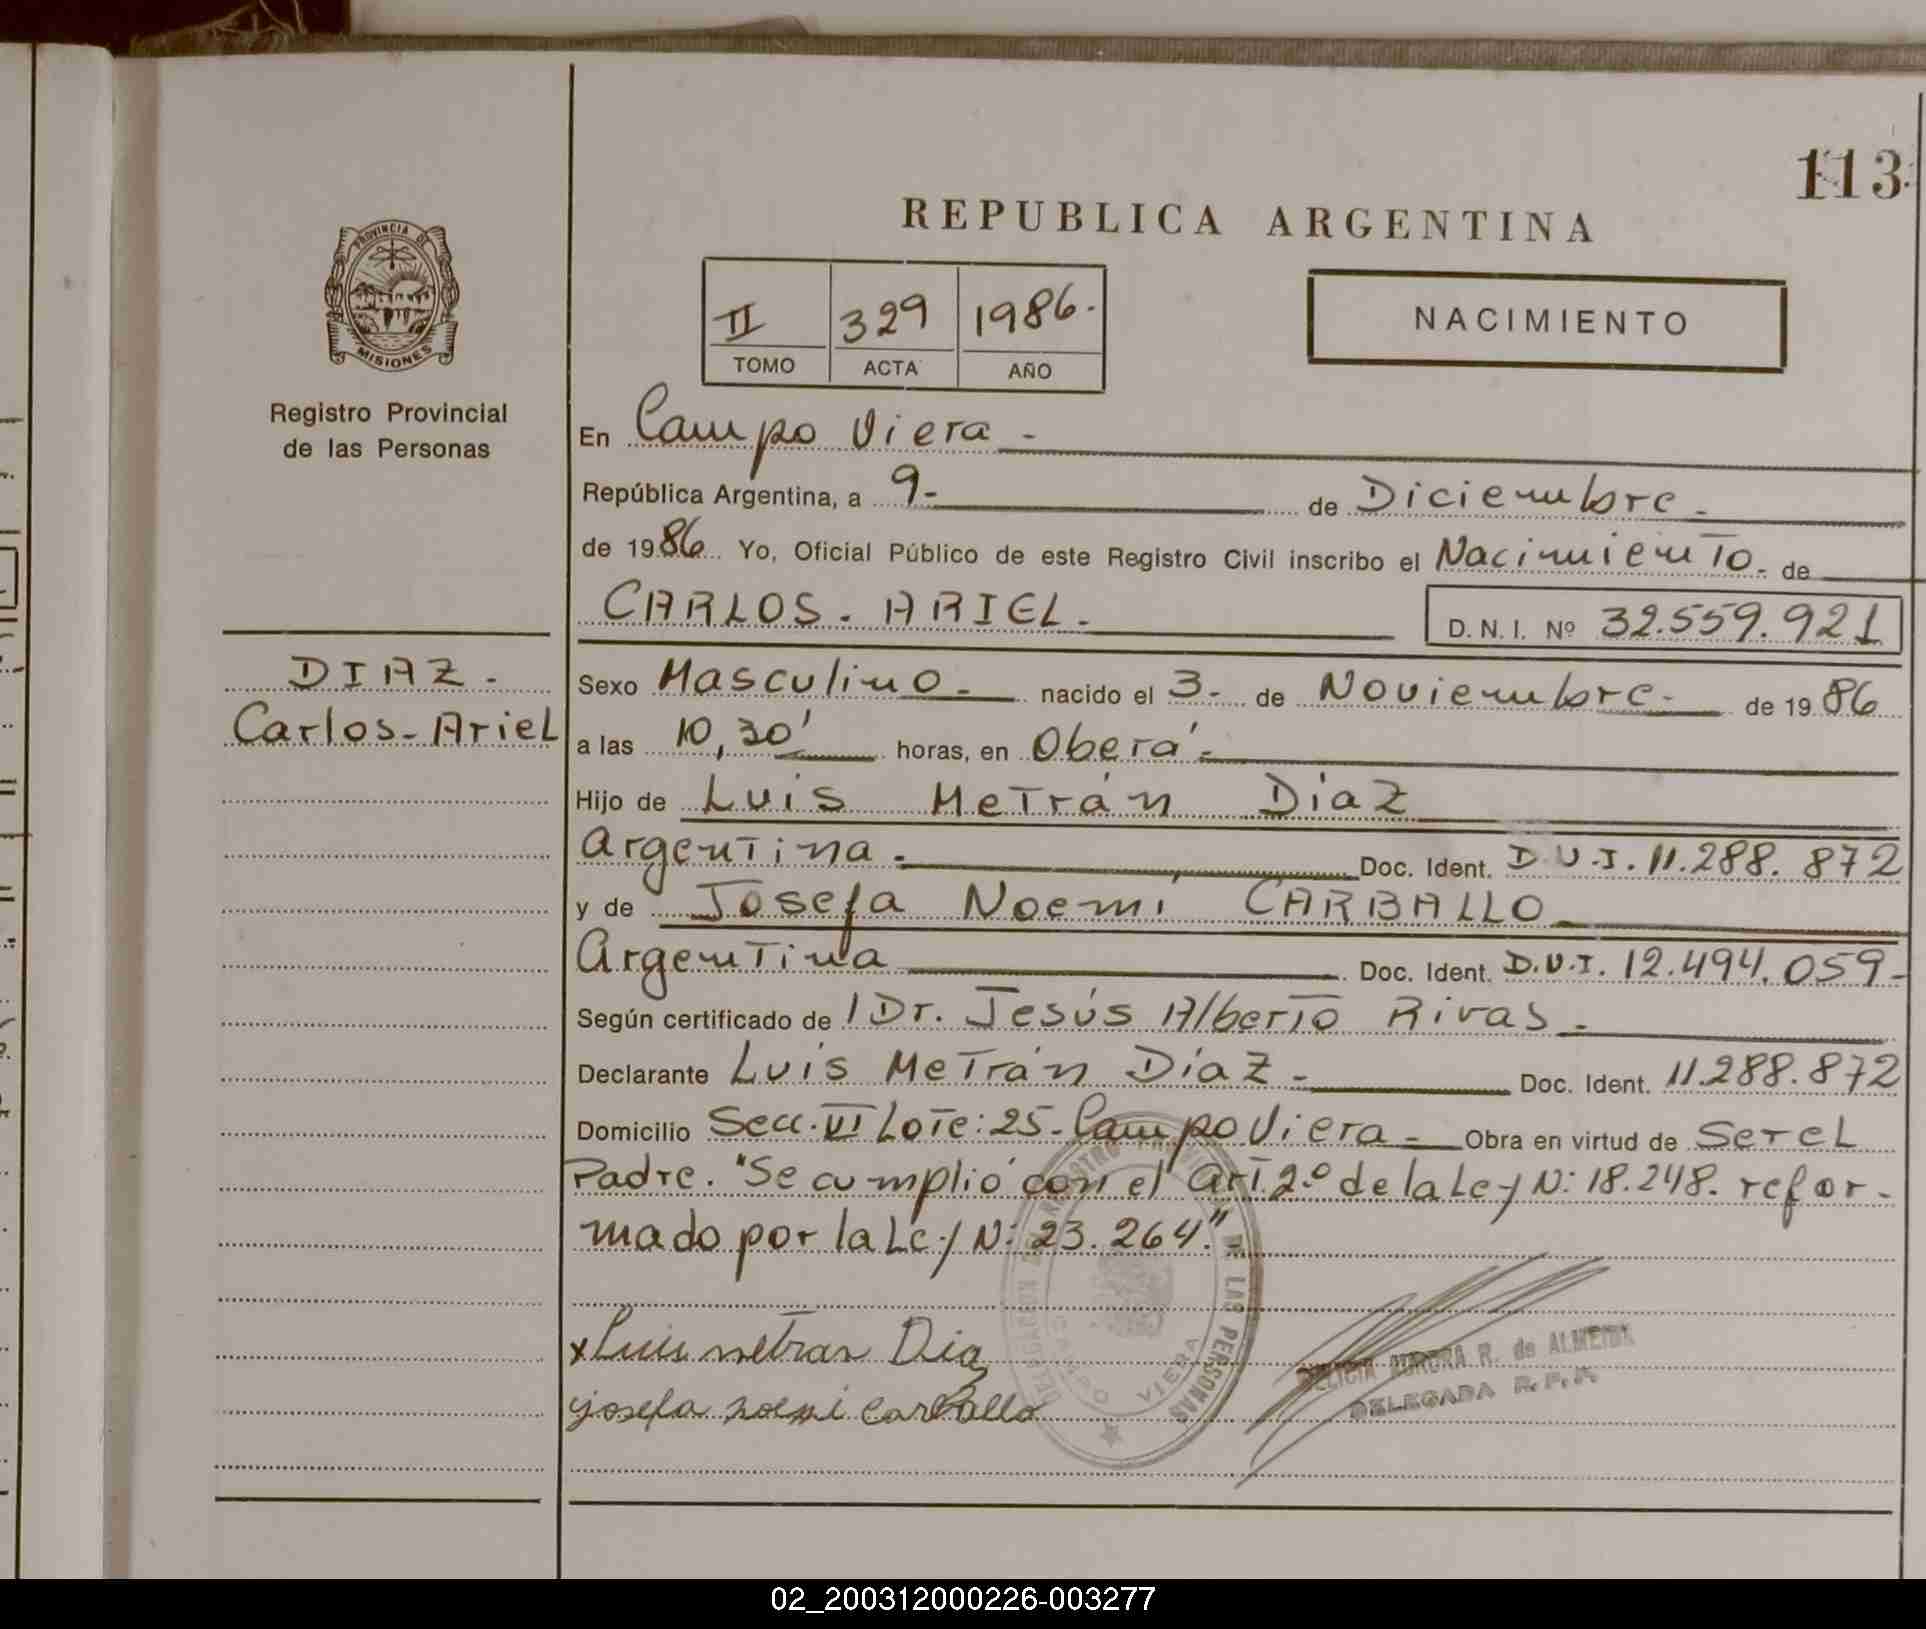 113
REPUBLICA ARGENTINA
PROVINCIA DE
MISIONES
Registro Provincial
de las Personas
II 329 1986.
TOMO ACTA AÑO
NACIMIENTO
En Campo Viera -
República Argentina, a 9- de Diciembre -
de 1986 Yo, Oficial Público de este Registro Civil inscribo el Nacimiento - de
CARLOS - ARIEL - D. N. I. Nº 32.559.921
DIAZ -
Carlos - Ariel
Sexo Masculino - nacido el 3- de Noviembre - de 1986
a las 10,30' horas, en Oberá -
Hijo de Luis Metrán Díaz
Argentina - Doc. Ident. D.U.I. 11.288.872
y de Josefa Noemí CARBALLO
Argentina Doc. Ident. D.U.I. 12.494.059-
Según certificado de / Dr. Jesús Alberto Rivas -
Declarante Luis Metrán Díaz - Doc. Ident. 11.288.872
Domicilio Secc. VI Lote: 25- Campo Viera - Obra en virtud de Ser el
Padre. "Se cumplió con el art. 2º de la Ley N: 18.248. refor-
mado por la Ley N: 23.264." -
x Luis metran Dia
josefa noemi carballo
DE LAS PERSONAS
CAMPO VIERA
DELICIA AURORA R. de ALMEIDA
DELEGADA R. P. P.
02_200312000226-003277